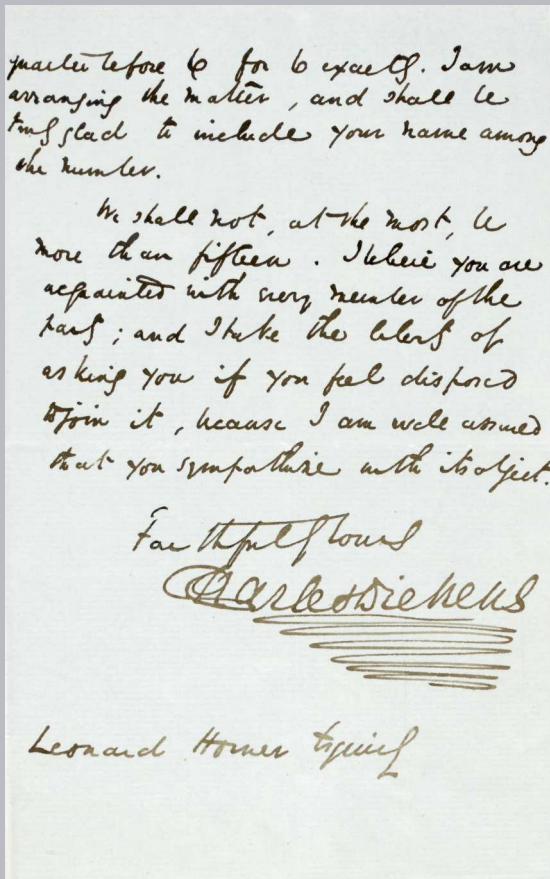 quarter before 6 for 6 exactly. I am
arranging the matter, and shall be
very glad to include your name among
the number.
We shall not, at the most, be
more than fifteen. I believe you are
acquainted with every member of the
party; and I take the liberty of
asking you if you feel disposed
to join it, because I am well assured
that you sympathize with its object.
Faithfully Yours
Charles Dickens
Leonard Horner Esquire